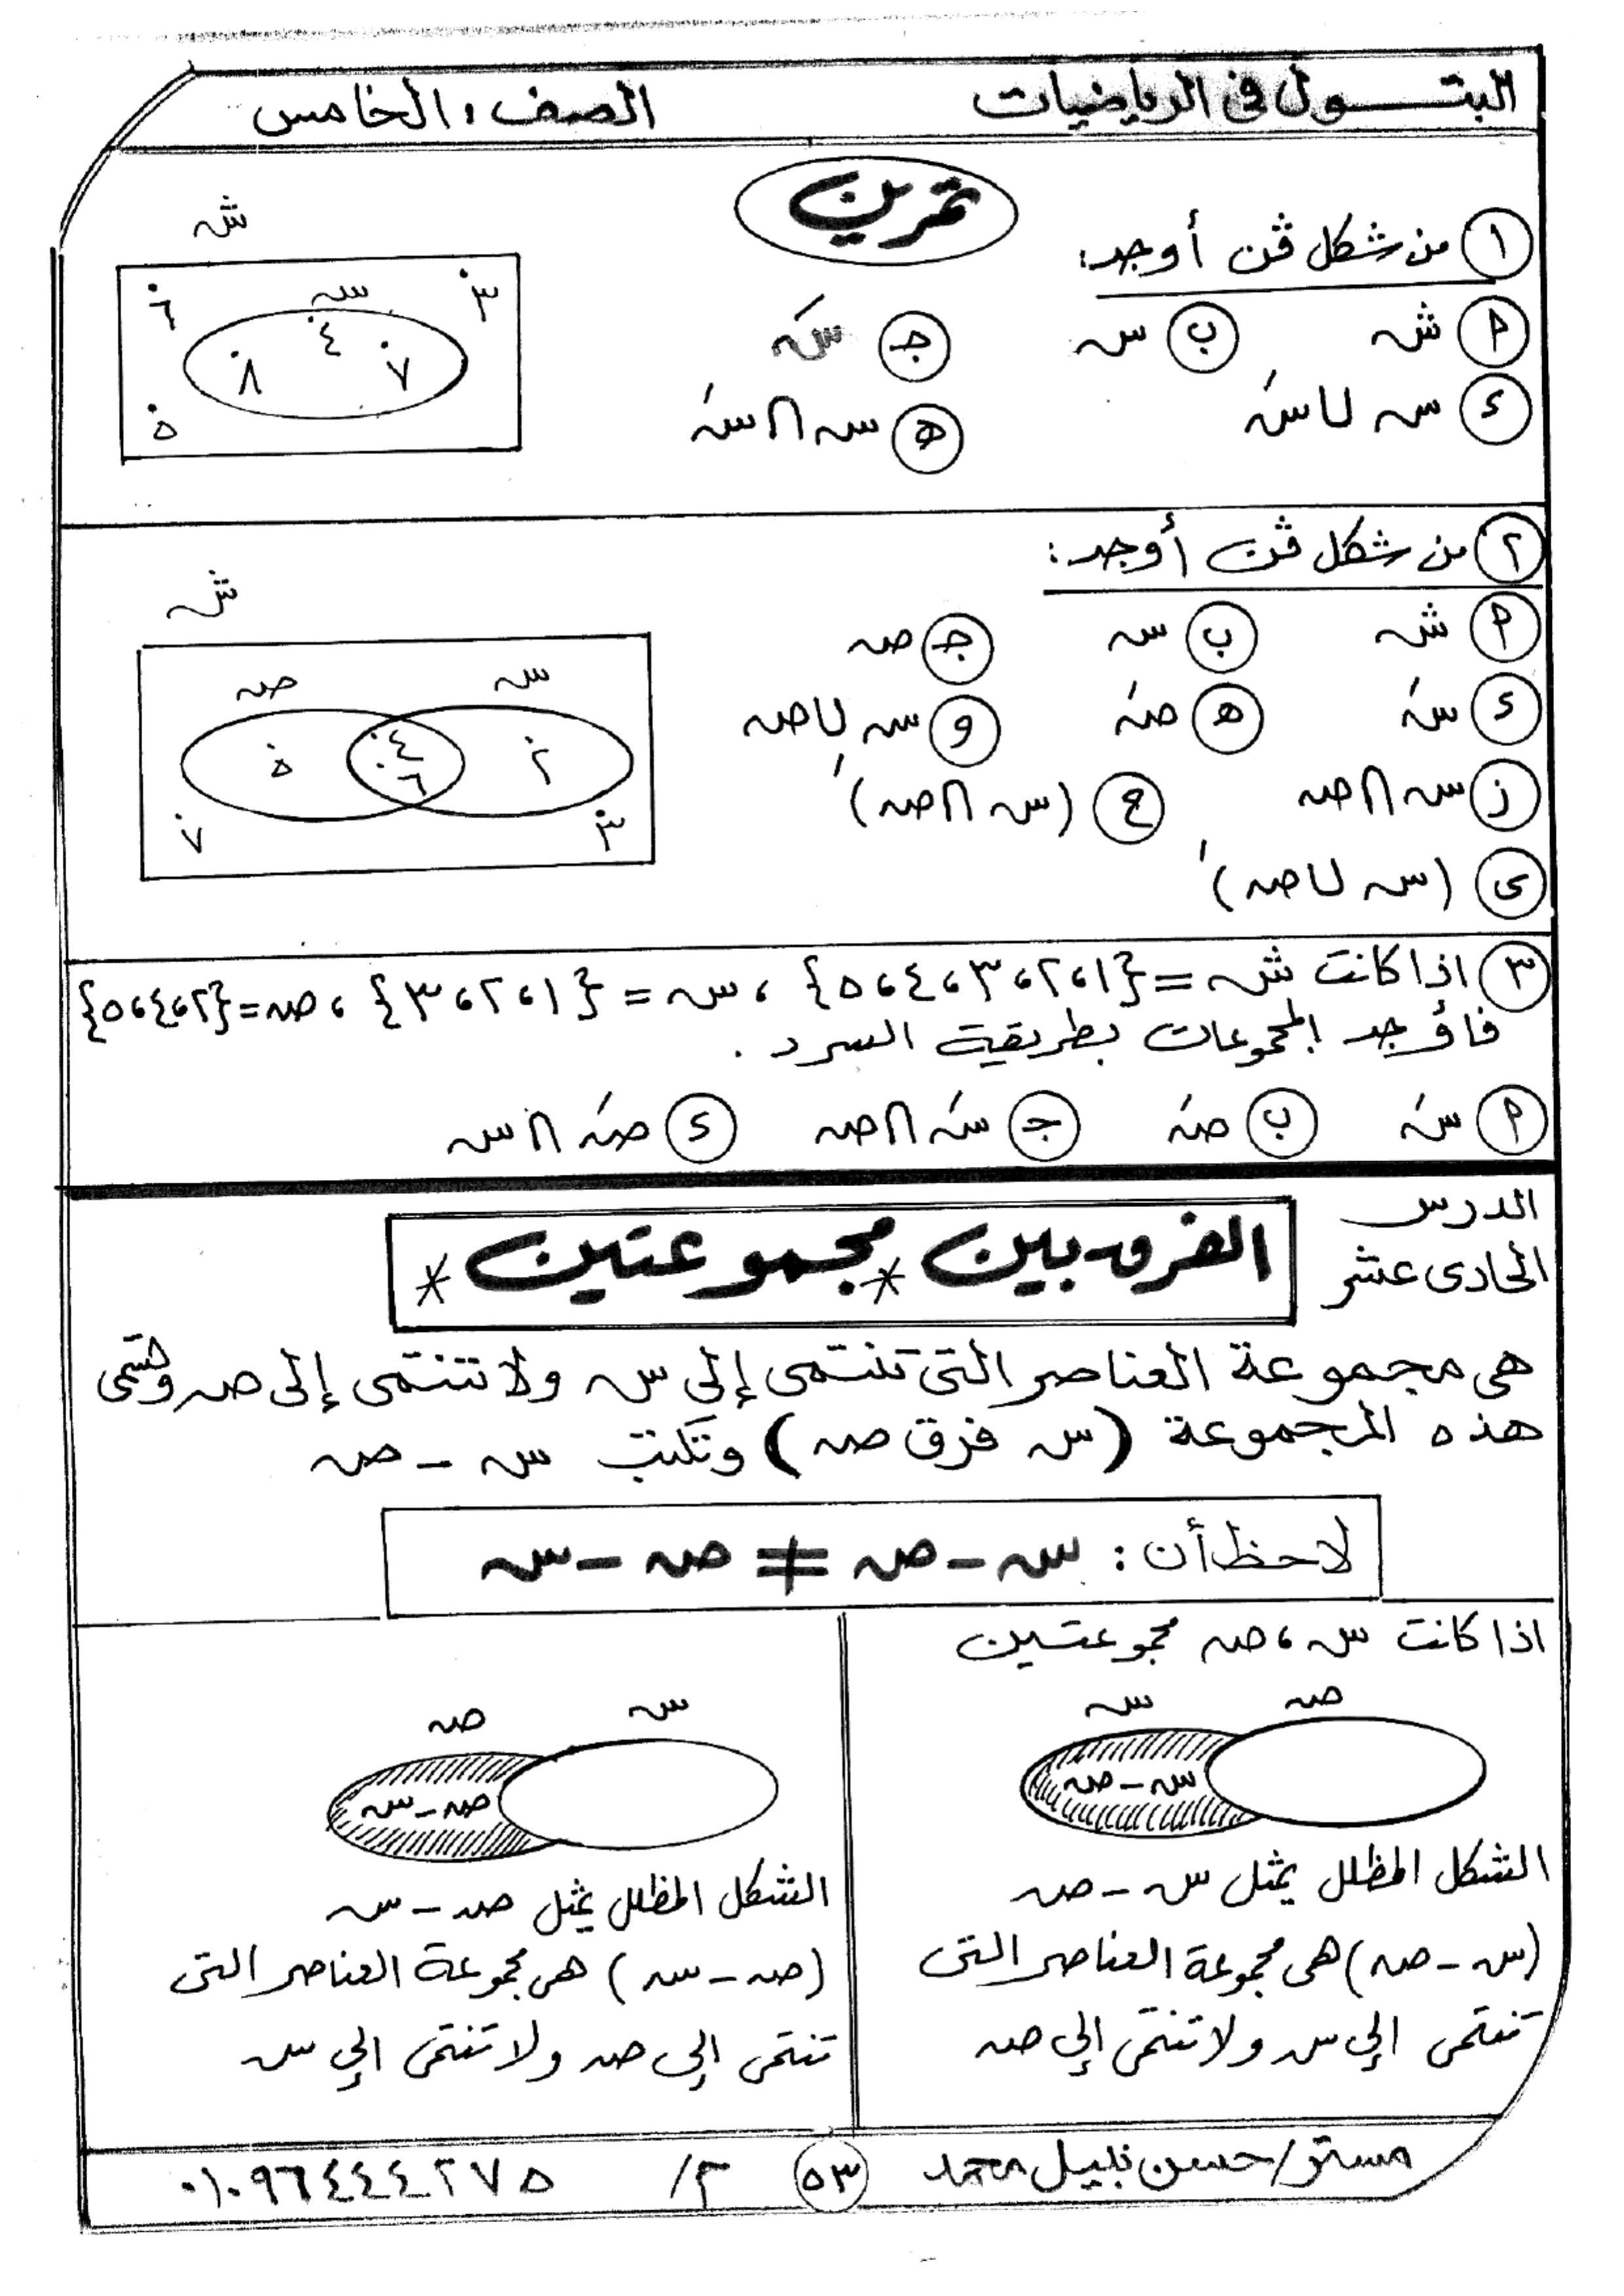 البتول فى الرياضيات الصف / الخامس
تمرين
١ من شكل ڤن أوجد:
ش
٣ ٦ س ٤ ٧ ٨ ٥
أ ش ب س ج سَ
د س ∪ سَ ه س ∩ سَ
٢ من شكل ڤن أوجد:
ش
س ص
٢ ٤ ٦ ٥ ٣ ٧
أ ش ب س ج ص
د سَ ه صَ و س ∪ ص
ز س ∩ ص ح (س ∩ ص)َ
ى (س ∪ ص)َ
٣ اذا كانت ش = {١،٢،٣،٤،٥} ، س = {١،٢،٣} ، ص = {٢،٤،٥}
فأوجد المجموعات بطريقة السرد .
أ سَ ب صَ ج سَ ∩ ص د صَ ∩ س
الدرس
الحادى عشر
* الفرق بين * مجموعتين
هى مجموعة العناصر التى تنتمى إلى س ولا تنتمى إلى ص وتسمى
هذه المجموعة (س فرق ص) وتكتب س - ص
لاحظ أن : س - ص ≠ ص - س
اذا كانت س ، ص مجموعتين
س ص
س - ص
الشكل المظلل يمثل س - ص
(س - ص) هى مجموعة العناصر التى
تنتمى الى س ولا تنتمى الى ص
س ص
ص - س
الشكل المظلل يمثل ص - س
(ص - س) هى مجموعة العناصر التى
تنتمى الى ص ولا تنتمى الى س
مستر / حسن نبيل محمد ٥٣ م / ٠١٠٩٦٤٤٤٢٧٥